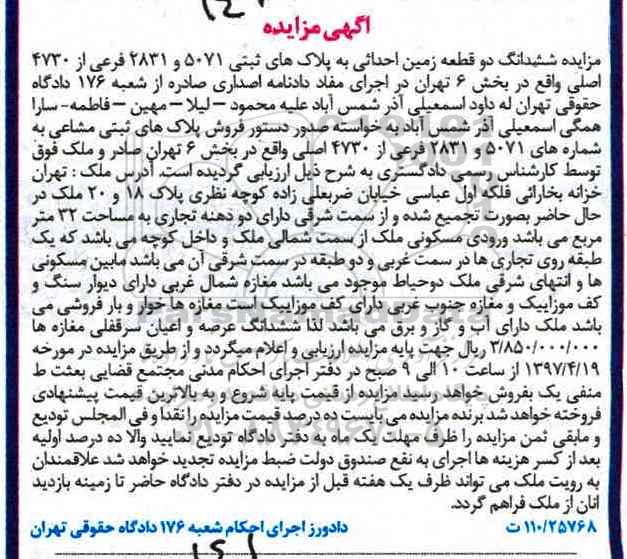 آگهی مزایده
مزایده ششدانگ دو قطعه زمین احداثی به پلاک های ثبتی ۵۰۷۱ و ۲۸۳۱ فرعی از ۴۷۳۰
اصلی واقع در بخش ۶ تهران در اجرای مفاد دادنامه اصداری صادره از شعبه ۱۷۶ دادگاه
حقوقی تهران له داود اسمعیلی آذر شمس آباد علیه محمود – لیلا – مهین – فاطمه- سارا
همگی اسمعیلی آذر شمس آباد به خواسته صدور دستور فروش پلاک های ثبتی مشاعی به
شماره های ۵۰۷۱ و ۲۸۳۱ فرعی از ۴۷۳۰ اصلی واقع در بخش ۶ تهران صادر و ملک فوق
توسط کارشناس رسمی دادگستری به شرح ذیل ارزیابی گردیده است. آدرس ملک : تهران
خزانه بخارائی فلکه اول عباسی خیابان ضربعلی زاده کوچه نظری پلاک ۱۸ و ۲۰ ملک در
حال حاضر بصورت تجمیع شده و از سمت شرقی دارای دو دهنه تجاری به مساحت ۳۲ متر
مربع می باشد ورودی مسکونی ملک از سمت شمالی ملک و داخل کوچه می باشد که یک
طبقه روی تجاری ها در سمت غربی و دو طبقه در سمت شرقی آن می باشد مابین مسکونی
ها و انتهای شرقی ملک دوحیاط موجود می باشد مغازه شمال غربی دارای دیوار سنگ و
کف موزاییک و مغازه جنوب غربی دارای کف موزاییک است مغازه ها خوار و بار فروشی می
باشد ملک دارای آب و گاز و برق می باشد لذا ششدانگ عرصه و اعیان سرقفلی مغازه ها
۳/۸۵۰/۰۰۰/۰۰۰ ریال جهت پایه مزایده ارزیابی و اعلام میگردد و از طریق مزایده در مورخه
۱۳۹۷/۴/۱۹ از ساعت ۱۰ الی ۹ صبح در دفتر اجرای احکام مدنی مجتمع قضایی بعثت ط
منفی یک بفروش خواهد رسید مزایده از قیمت پایه شروع و به بالاترین قیمت پیشنهادی
فروخته خواهد شد برنده مزایده می بایست ده درصد قیمت مزایده را نقدا و فی المجلس تودیع
و مابقی ثمن مزایده را ظرف مهلت یک ماه به دفتر دادگاه تودیع نمایید والا ده درصد اولیه
بعد از کسر هزینه ها اجرای به نفع صندوق دولت ضبط مزایده تجدید خواهد شد علاقمندان
به رویت ملک می تواند ظرف یک هفته قبل از مزایده در دفتر دادگاه حاضر تا زمینه بازدید
انان از ملک فراهم گردد.
۱۱۰/۲۵۷۶۸ ت دادورز اجرای احکام شعبه ۱۷۶ دادگاه حقوقی تهران